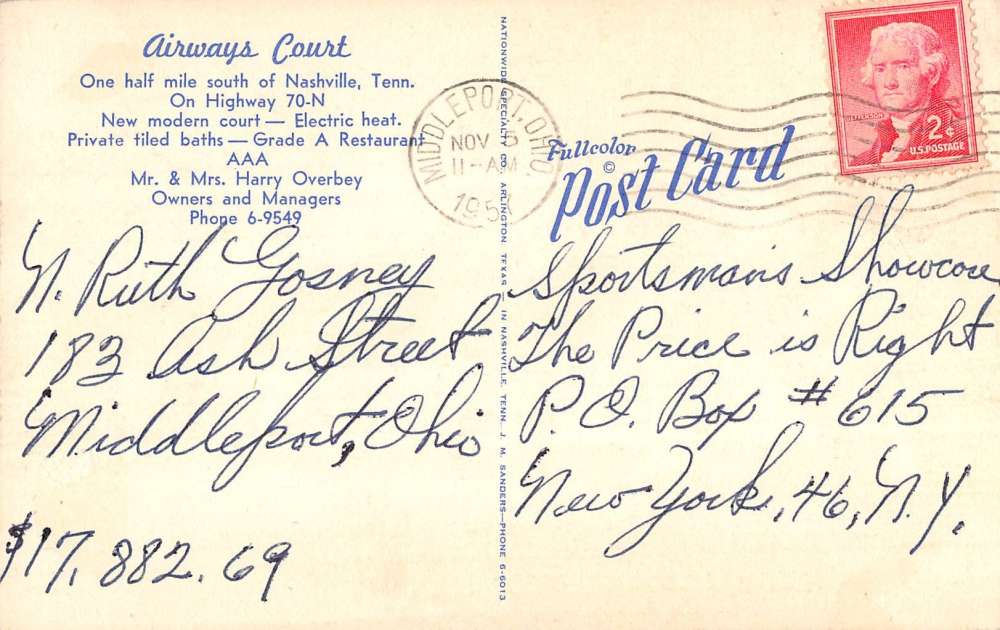 Airways Court
One half mile south of Nashville, Tenn.
On Highway 70-N
New modern court — Electric heat.
Private tiled baths — Grade A Restaurant
AAA
Mr. & Mrs. Harry Overbey
Owners and Managers
Phone 6-9549
N. Ruth Gosney
183 Ash Street
Middleport, Ohio
$17,882.69
NATIONWIDE SPECIALTY CO., ARLINGTON TEXAS — IN NASHVILLE, TENN. J. M. SANDERS—PHONE 6-6013
MIDDLEPORT, OHIO.
NOV 5
11-AM
Fullcolor
©
Post Card
JEFFERSON
2¢
U.S. POSTAGE
Sportsman's Showcase
The Price is Right
P.O. Box # 615
New York, 46, N.Y.